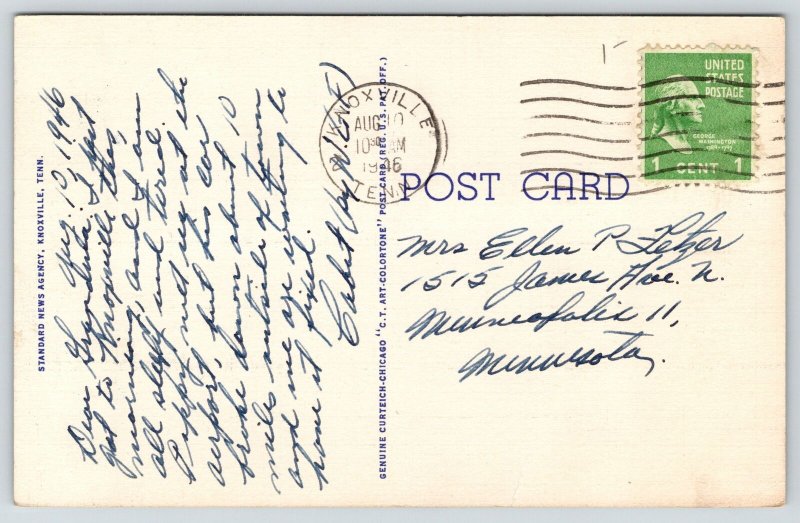 STANDARD NEWS AGENCY, KNOXVILLE, TENN.
Aug. 10 1946
Dear Grandma: I just
got to Knoxville this
morning, and I am
all sleepy and tired.
Puppy met us at the
airport, but his car
broke down about 10
miles outside of town
and we are waiting to
have it fixed.
(by W.E.F.)
GENUINE CURTEICH-CHICAGO "C.T. ART-COLORTONE" POST CARD (REG. U.S. PAT. OFF.)
KNOXVILLE
AUG 10
10 30 AM
1946
TENN.
UNITED
STATES
POSTAGE
GEORGE
WASHINGTON
1789-1797
1 CENT 1
POST CARD
Mrs Ellen P. Fetzer
1515 James Ave. N.
Minneapolis 11,
Minnesota.